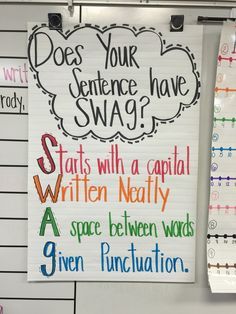 Does Your
Sentence have
SWAG?
Starts with a capital
Written Neatly
A space between words
given Punctuation.
writ
rody,